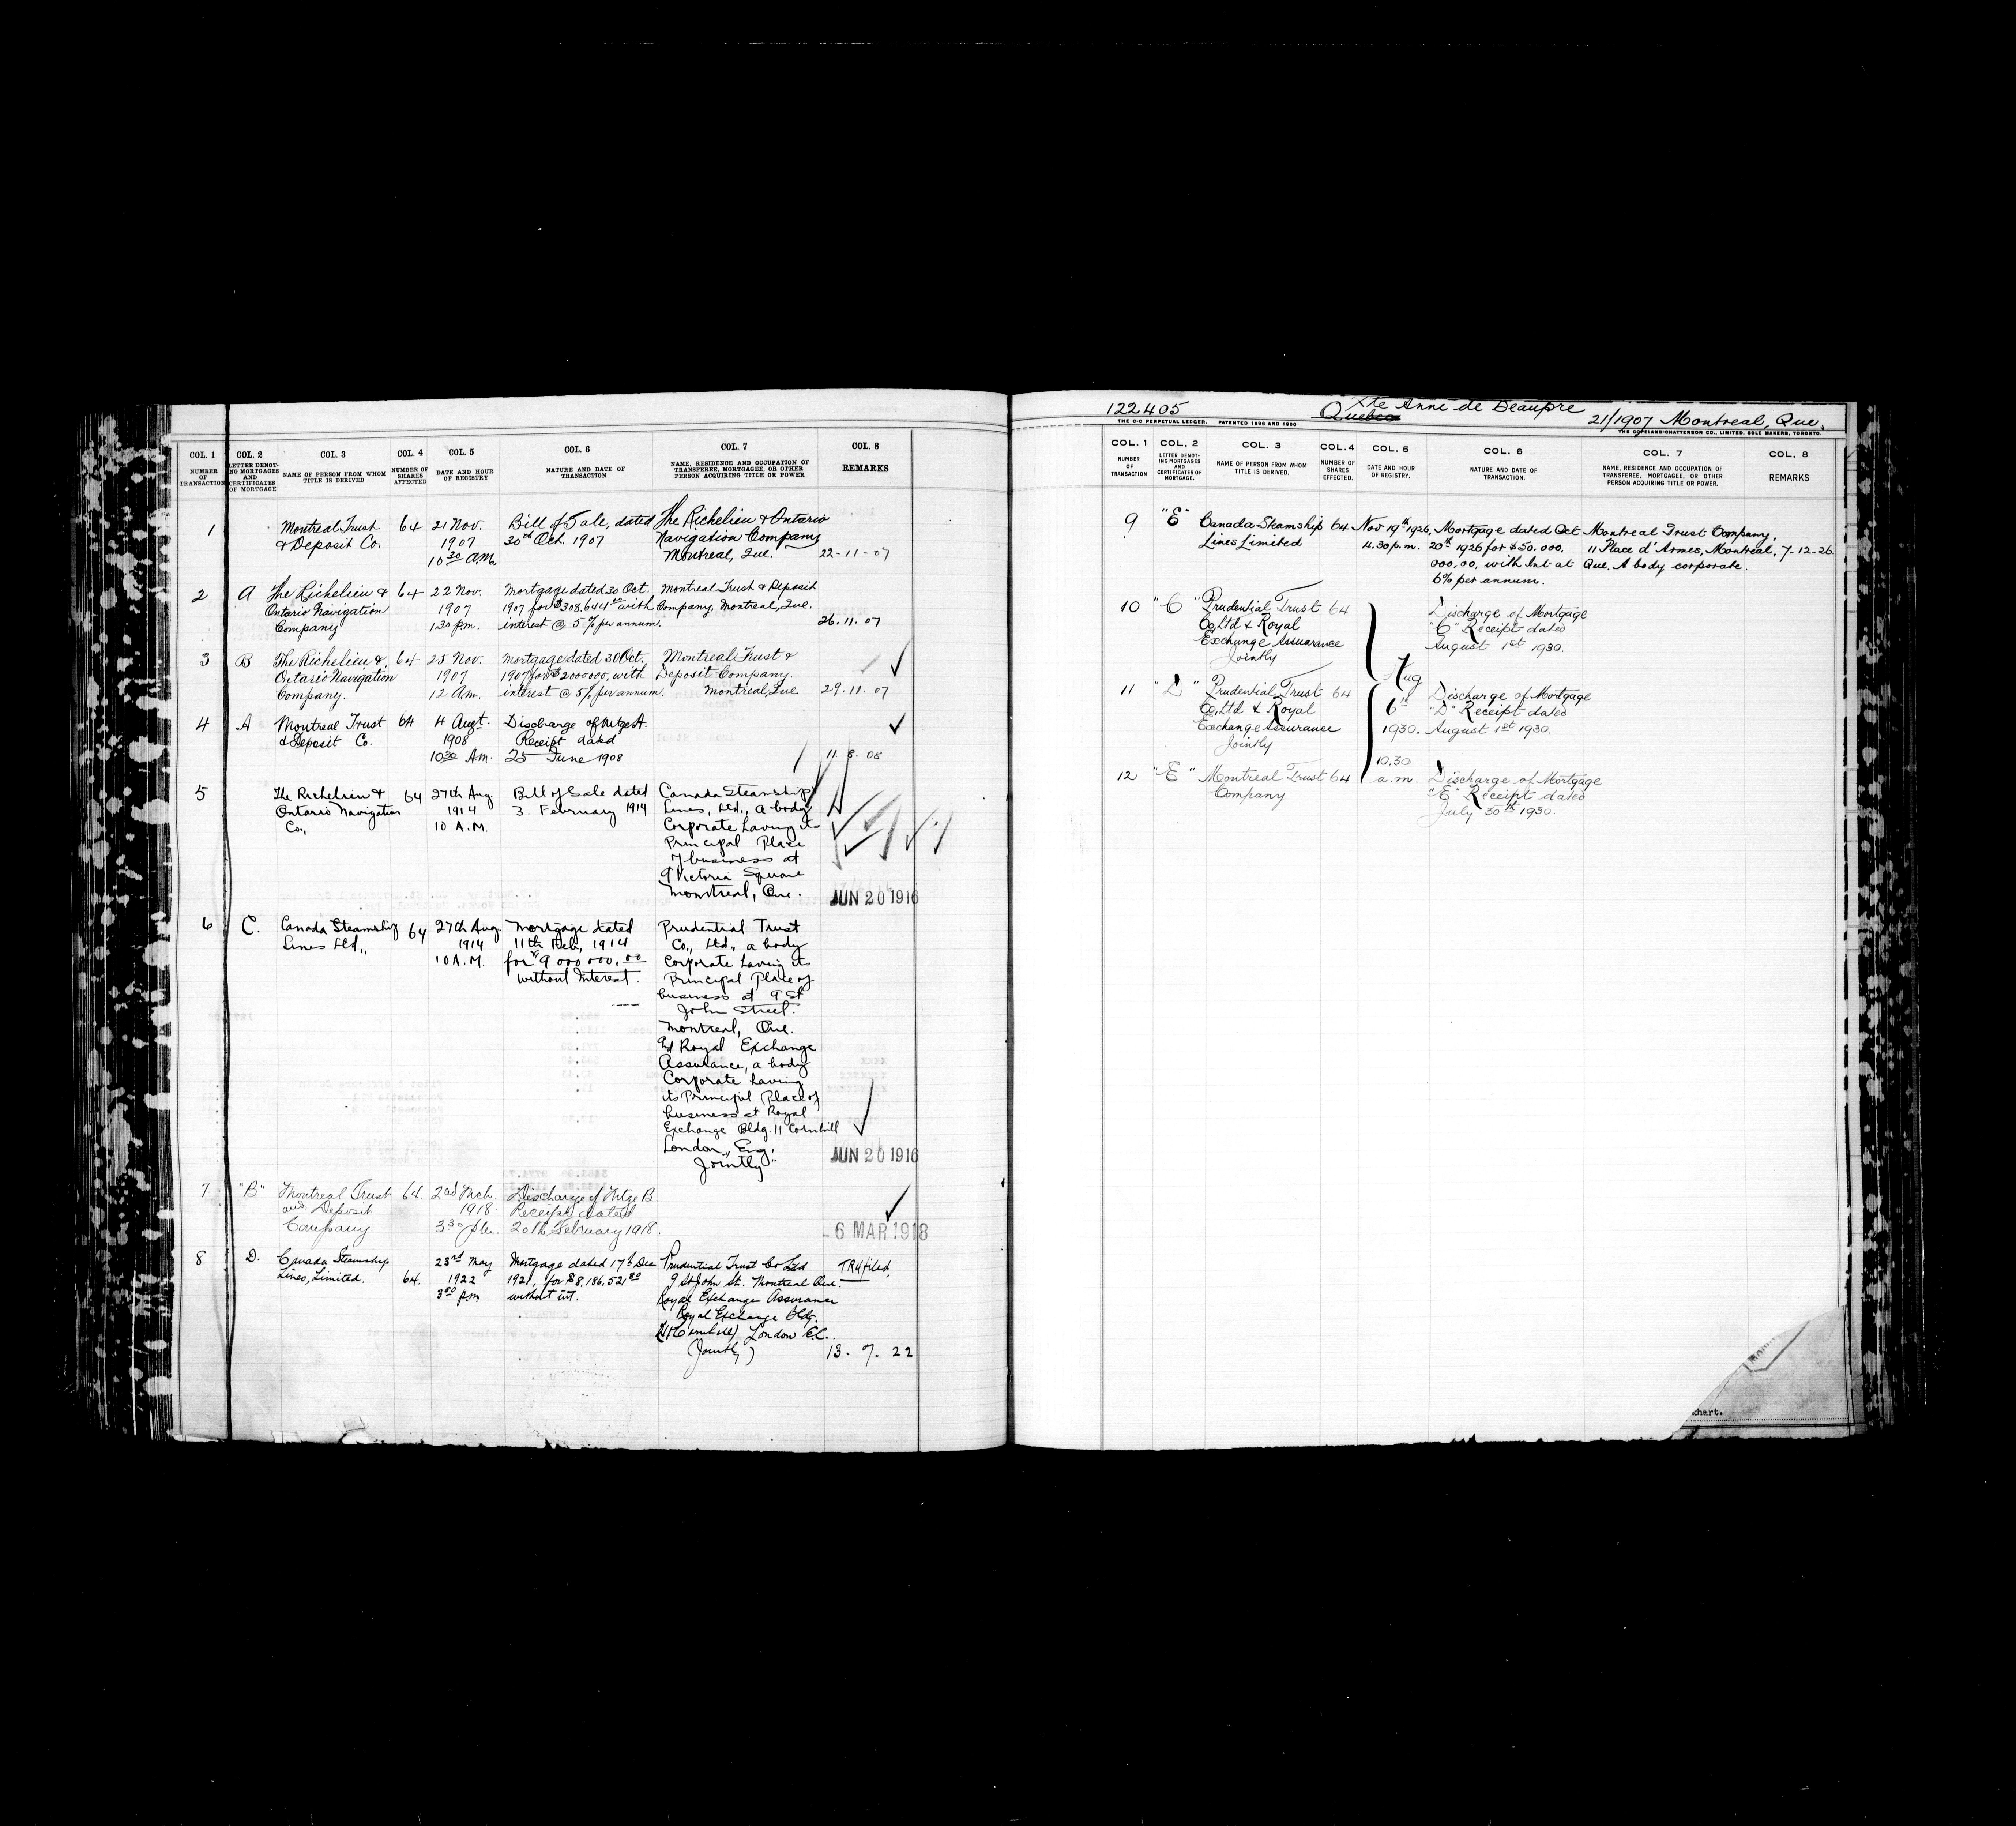 COL. 1 COL. 2 COL. 3 COL. 4 COL. 5 COL. 6 COL. 7 COL. 8
NUMBER OF TRANSACTION
LETTER DENOTING MORTGAGES AND CERTIFICATES OF MORTGAGE
NAME OF PERSON FROM WHOM TITLE IS DERIVED
NUMBER OF SHARES AFFECTED
DATE AND HOUR OF REGISTRY
NATURE AND DATE OF TRANSACTION
NAME, RESIDENCE AND OCCUPATION OF TRANSFEREE, MORTGAGEE, OR OTHER PERSON ACQUIRING TITLE OR POWER
REMARKS
1 Montreal Trust 64 21 Nov. Bill of Sale, dated The Richelieu & Ontario
& Deposit Co. 1907 30th Oct. 1907 Navigation Company
10 30 A.M. Montreal, Que. 22-11-07
2 A The Richelieu & 64 22 Nov. Mortgage dated 30 Oct. Montreal Trust & Deposit
Ontario Navigation 1907 1907 for $308.644 with Company, Montreal, Que.
Company 1 30 p.m. interest @ 5% per annum. 26.11.07
3 B The Richelieu & 64 25 Nov. Mortgage dated 30 Oct. Montreal Trust &
Ontario Navigation 1907 1907 for $2000000, with Deposit Company.
Company. 12 A.m. interest @ 5% per annum. Montreal, Que 29.11.07
4 A Montreal Trust 64 4 Augt. Discharge of Mtge A.
& Deposit Co. 1908 Receipt dated
10 30 Am. 25 June 1908 11. 8. 08
5 The Richelieu & 64 27th Aug Bill of Sale dated Canada Steamship
Ontario Navigation 1914 3. February 1914 Lines, Ltd., a body
Co., 10 A.M. Corporate having its
Principal Place
of business at
9 Victoria Square
Montreal, Que. JUN 20 1916
6 C. Canada Steamship 64 27th Aug Mortgage dated Prudential Trust
Lines Ltd., 1914 11th Feb, 1914 Co., Ltd., a body
10 A.M. for $9 000 000.00 Corporate having its
without Interest. Principal Place of
business at 9 St
John Street.
Montreal, Que.
and Royal Exchange
Assurance, a body
Corporate having
its Principal Place of
business at Royal
Exchange Bldg. 11 Cornhill
London, Eng.
Jointly JUN 20 1916
7 "B" Montreal Trust 64. 2nd Mch. Discharge of Mtge B.
and Deposit 1918 Receipt dated
Company. 3 30 p.m. 20th February 1918. 6 MAR 1918
8 D. Canada Steamship 23rd May Mortgage dated 17th Dec Prudential Trust Co Ltd
Lines, Limited. 64. 1922 1921, for $8,186,521 80 9 St John St. Montreal Que.
3 00 pm without int. Royal Exchange Assurance
Royal Exchange Bldg.
(11 Cornhill) London E.C.
(Jointly) 13. 7. 22
122405 Quebec Ste Anne de Beaupre 21/1907 Montreal, Que.
THE C-C PERPETUAL LEDGER. PATENTED 1896 AND 1900
THE COPELAND-CHATTERSON CO., LIMITED, SOLE MAKERS, TORONTO.
COL. 1 COL. 2 COL. 3 COL. 4 COL. 5 COL. 6 COL. 7 COL. 8
NUMBER OF TRANSACTION
LETTER DENOTING MORTGAGES AND CERTIFICATES OF MORTGAGE.
NAME OF PERSON FROM WHOM TITLE IS DERIVED.
NUMBER OF SHARES EFFECTED.
DATE AND HOUR OF REGISTRY.
NATURE AND DATE OF TRANSACTION.
NAME, RESIDENCE AND OCCUPATION OF TRANSFEREE, MORTGAGEE, OR OTHER PERSON ACQUIRING TITLE OR POWER.
REMARKS
9 "E" Canada Steamship 64 Nov 19th 1926, Mortgage dated Oct Montreal Trust Company,
Lines Limited 4.30 p.m. 20th 1926 for $50.000. 11 Place d'Armes, Montreal, 7-12-26
000.00, with Int at Que. A body corporate.
6% per annum.
10 "C" Prudential Trust 64 Discharge of Mortgage
Co. Ltd & Royal "C" Receipt dated
Exchange Assurance August 1st 1930.
Jointly
Aug
11 "D" Prudential Trust 64 6th Discharge of Mortgage
Co. Ltd & Royal "D" Receipt dated
Exchange Assurance 1930. August 1st 1930.
Jointly
10.30
12 "E" Montreal Trust 64 a.m. Discharge of Mortgage
Company "E" Receipt dated
July 30th 1930.